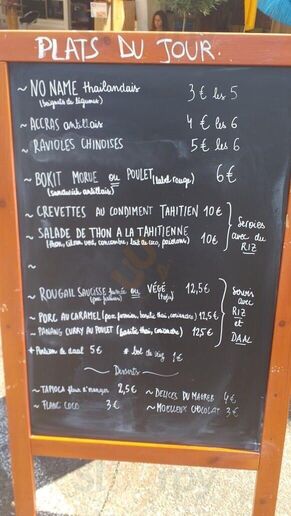 PLATS DU JOUR.
~ NO NAME thaïlandais 3€ les 5
(beignets de légumes)
~ ACCRAS antillais 4 € les 6
~ RAVIOLES CHINOISES 5€ les 6
~ BOKIT MORUE ou POULET (label rouge) 6€
(sandwich antillais)
~ CREVETTES AU CONDIMENT TAHITIEN 10€
~ SALADE DE THON A LA TAHITIENNE 10€
(thon, citron vert, concombre, lait de coco, poivrons)
Servies
avec du
RIZ
~
~ ROUGAIL SAUCISSE fumée ou VÉGÉ 12,5€
(porc fermier) (tofu)
~ PORC AU CARAMEL (porc fermier, basilic thaï, coriandre) 12,5€
~ PANANG CURRY AU POULET (basilic thaï, coriandre) 12,5€
Servis
avec
RIZ
et
DAAL
* Portion de daal 5€ * bol de riz 1€
~ Desserts ~
~ TAPIOCA fleur d'oranger 2,5€
~ DELICES DU MAHREB 4€
~ FLANC COCO 3€
~ MOELLEUX CHOCOLAT 3€